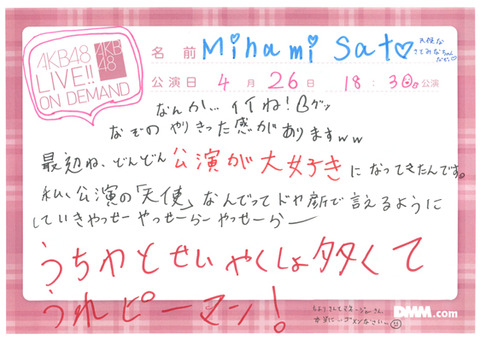 AKB48
LIVE!!
ON DEMAND
AKB
48
名前 Minami Sato♡
天使な
さとみなちゃん
だぜ♡
公演日 4月26日 18:30。公演
なんか… イイね！Bグッ
なぞの やりきった感が ありますww
最近ね、どんどん 公演が大好き になってきたんです。
私、公演の「天使」なんでってドヤ顔で言えるように
していきやっせー やっせーらー やっせーらー
うちわとせいやくしょ多くて
うれピーマン！
DMM.com